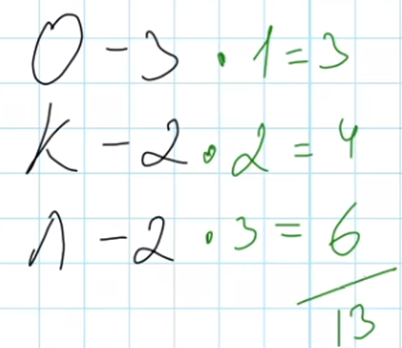 О - 3 · 1 = 3
К - 2 · 2 = 4
Л - 2 · 3 = 6
13